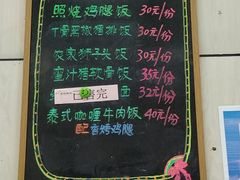 照烧鸡腿饭 30元/份
T骨黑椒猪排饭 30元/份
农家狮子头饭 30元/份
蜜汁猪软骨饭 35元/份
已售完 鱼 32元/份
泰式咖喱牛肉饭 40元/份
配香烤鸡腿